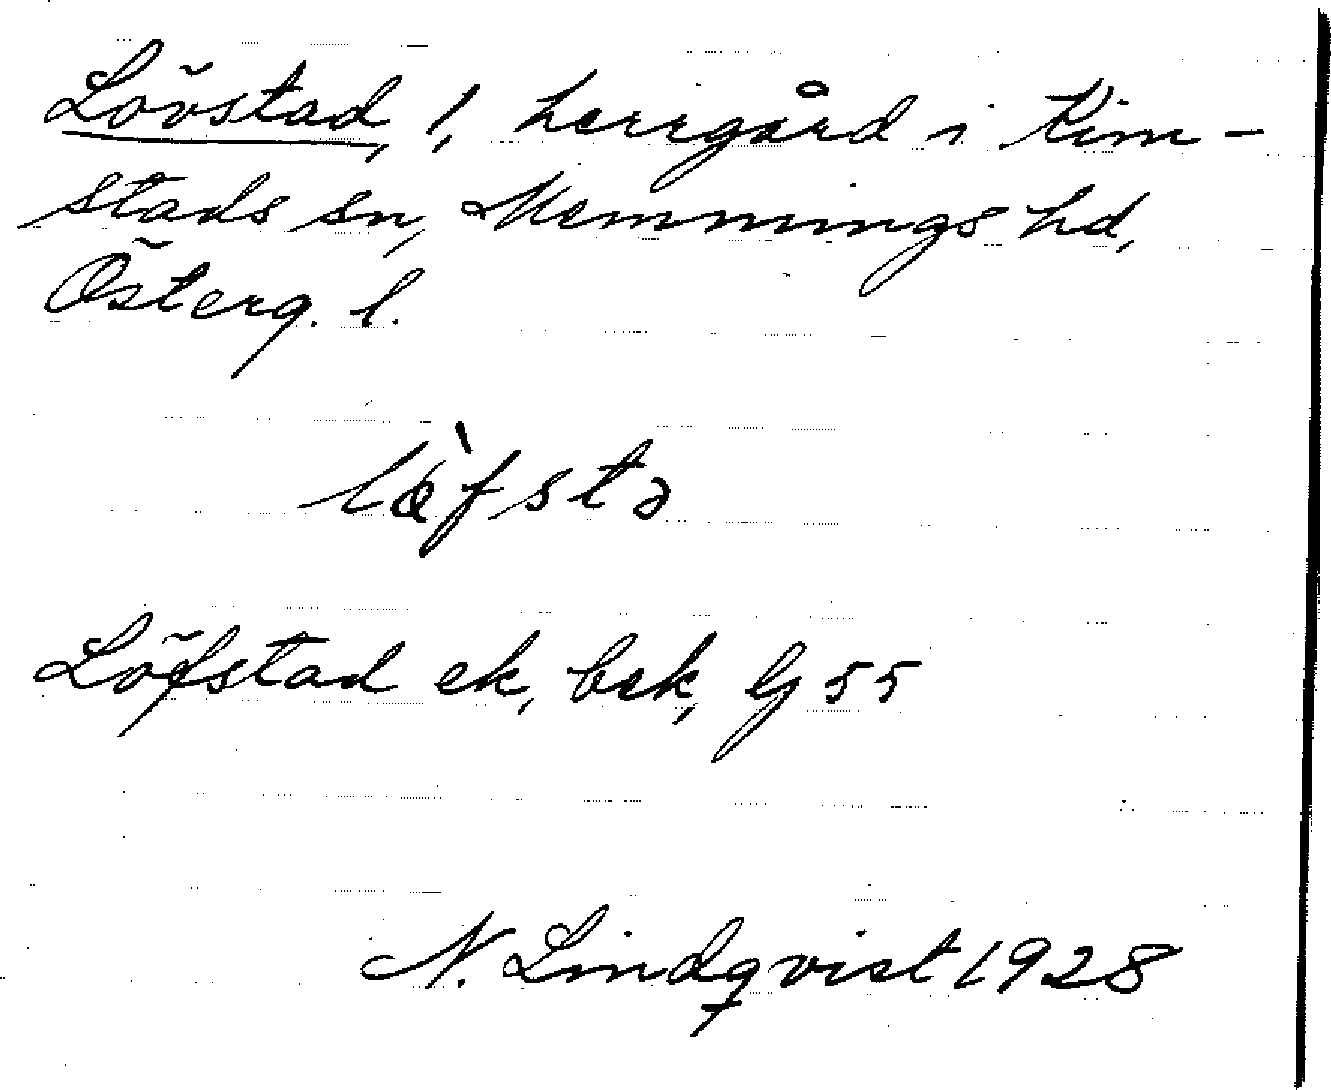 Lövstad, 1, herrgård i Kim-
stads sn, Memmings hd,
Österg. l.
lœ̀fstə
Löfstad ek, bek, G 55
N. Lindqvist 1928